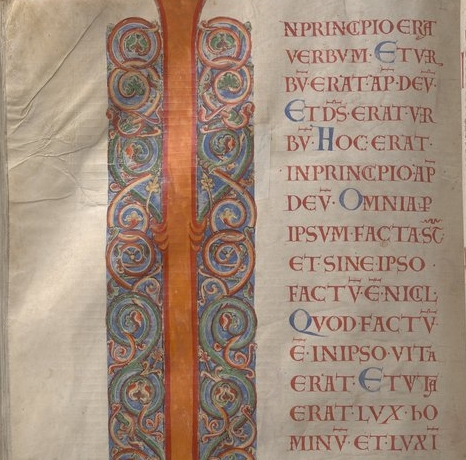 NPRINCIPIO ERA
VERBVM · ET VR
BV̄ · ERAT · AP̄ · DEV̄ ·
ET D̄S · ERAT · VR
BV̄ · HOC · ERAT ·
IN PRINCIPIO · AP̄
DEV̄ · OMNIA P̄
IPSVM · FACTA · ST̄
ET · SINE · IPSO ·
FACTV̄ · Ē · NICĪL
QVOD · FACTV̄ ·
Ē · IN IPSO · VITA
ERAT · ET VITA
ERAT · LVX · hO
MINV̄ · ET · LVX I